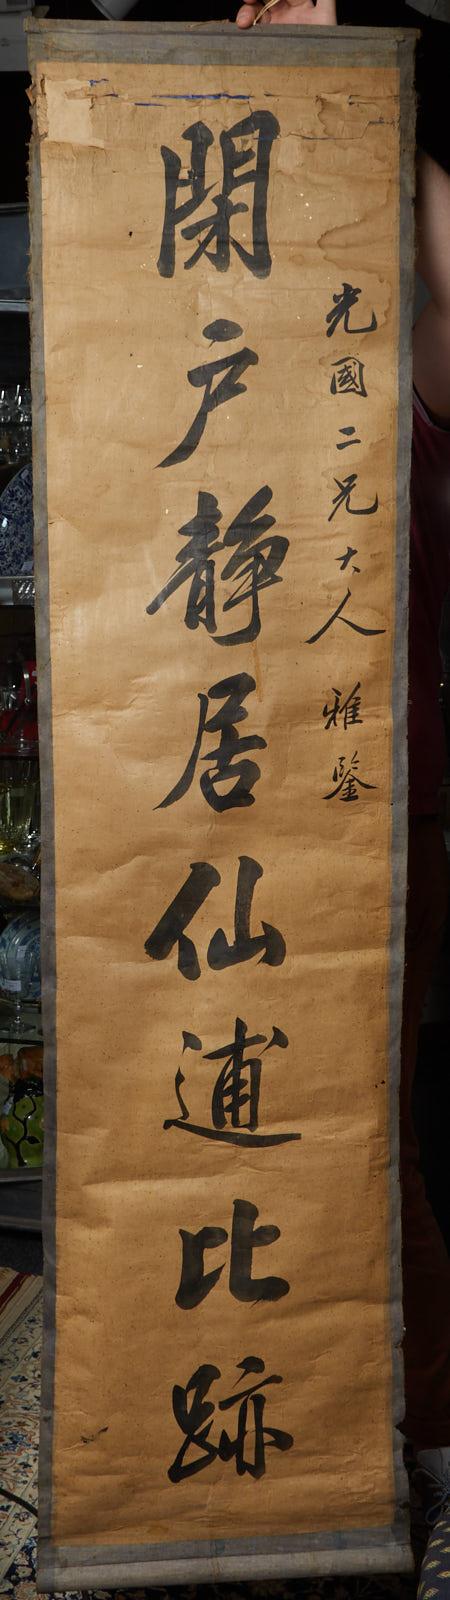 光國二兄大人 雅鑒
閑戶静居仙逋比跡